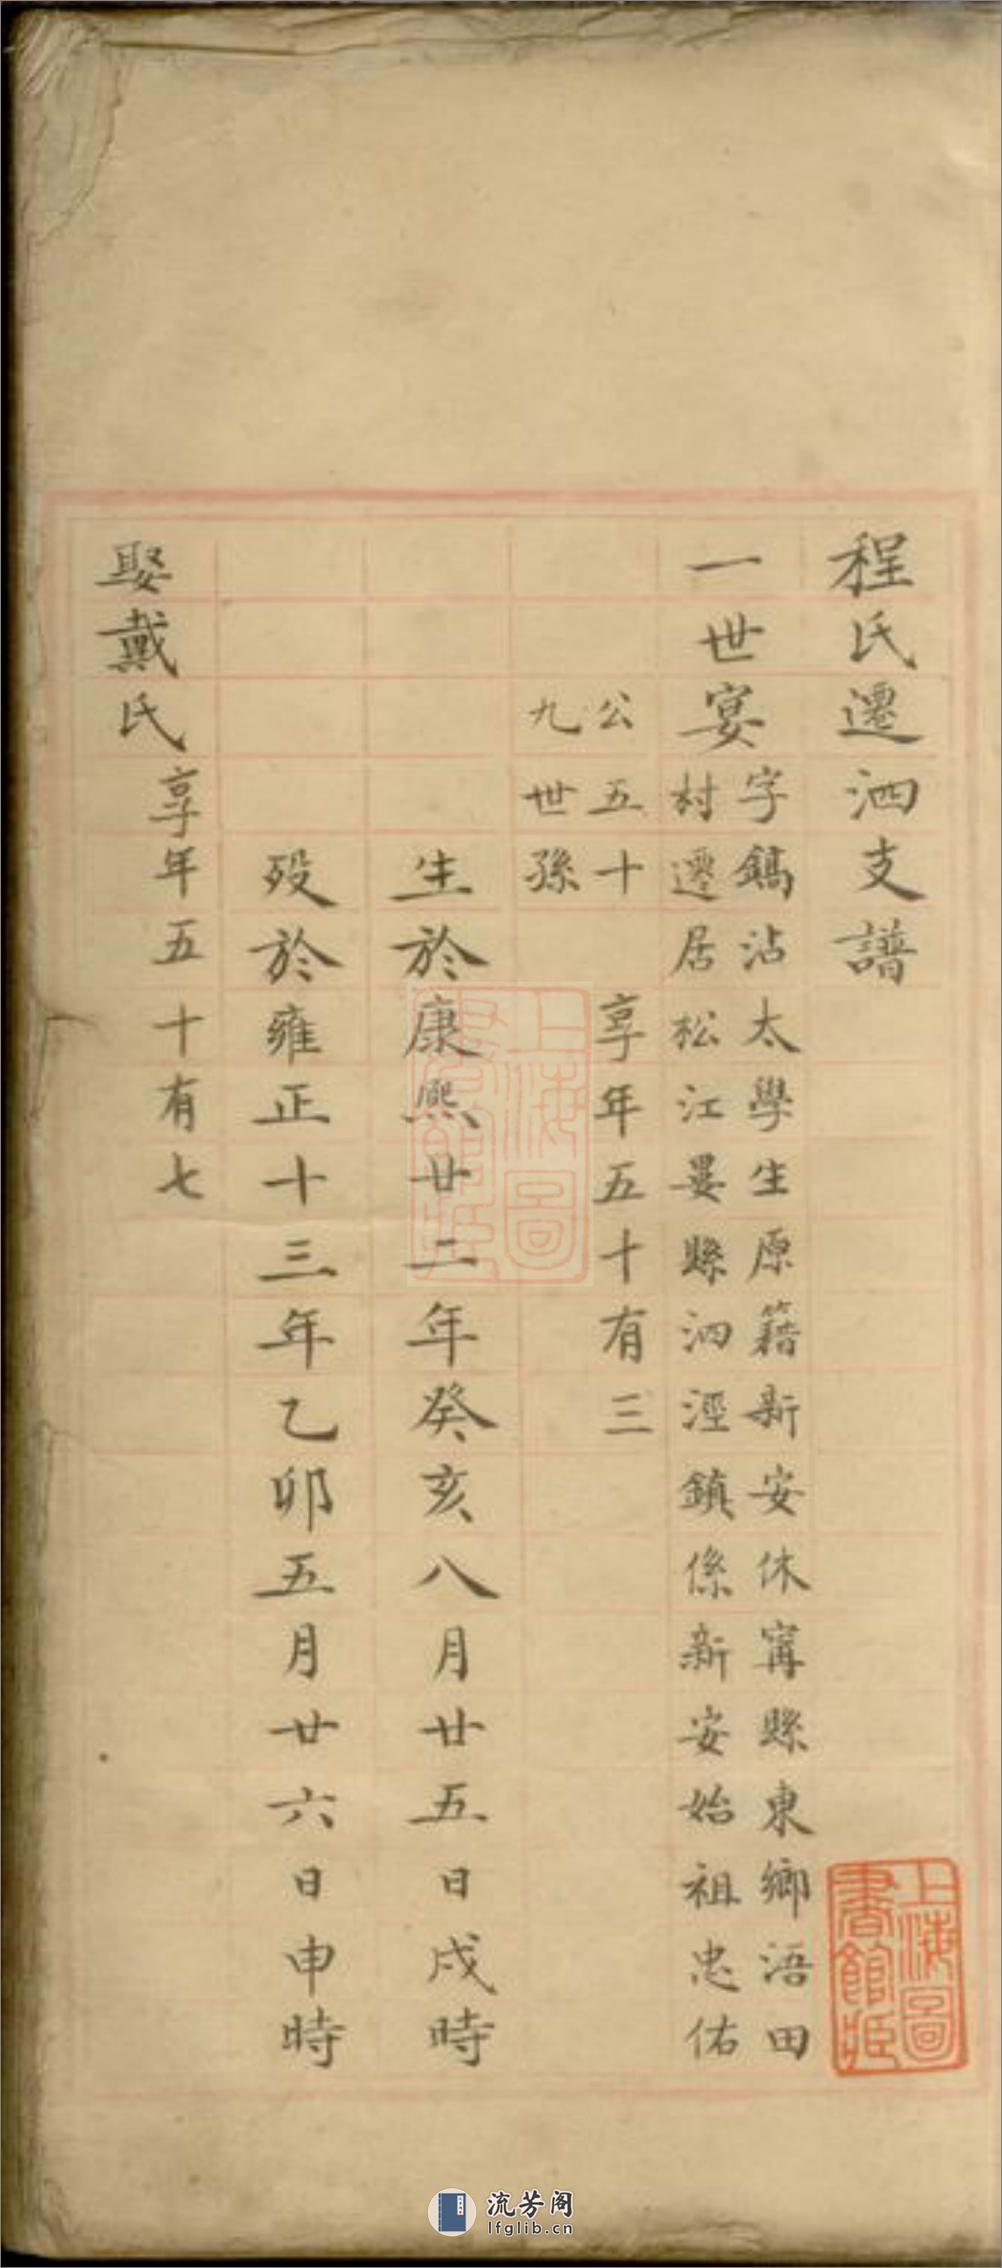 程氏遷泗支譜
一世宴
字鎬沾太學生原籍新安休甯縣東鄉浯田
村遷居松江婁縣泗涇鎮係新安始祖忠佑
公五十
九世孫
享年五十有三
生於康熙廿二年癸亥八月廿五日戌時
歿於雍正十三年乙卯五月廿六日申時
娶戴氏
享年五十有七
上海圖書館藏
上海圖書館藏
流芳阁
lfglib.cn